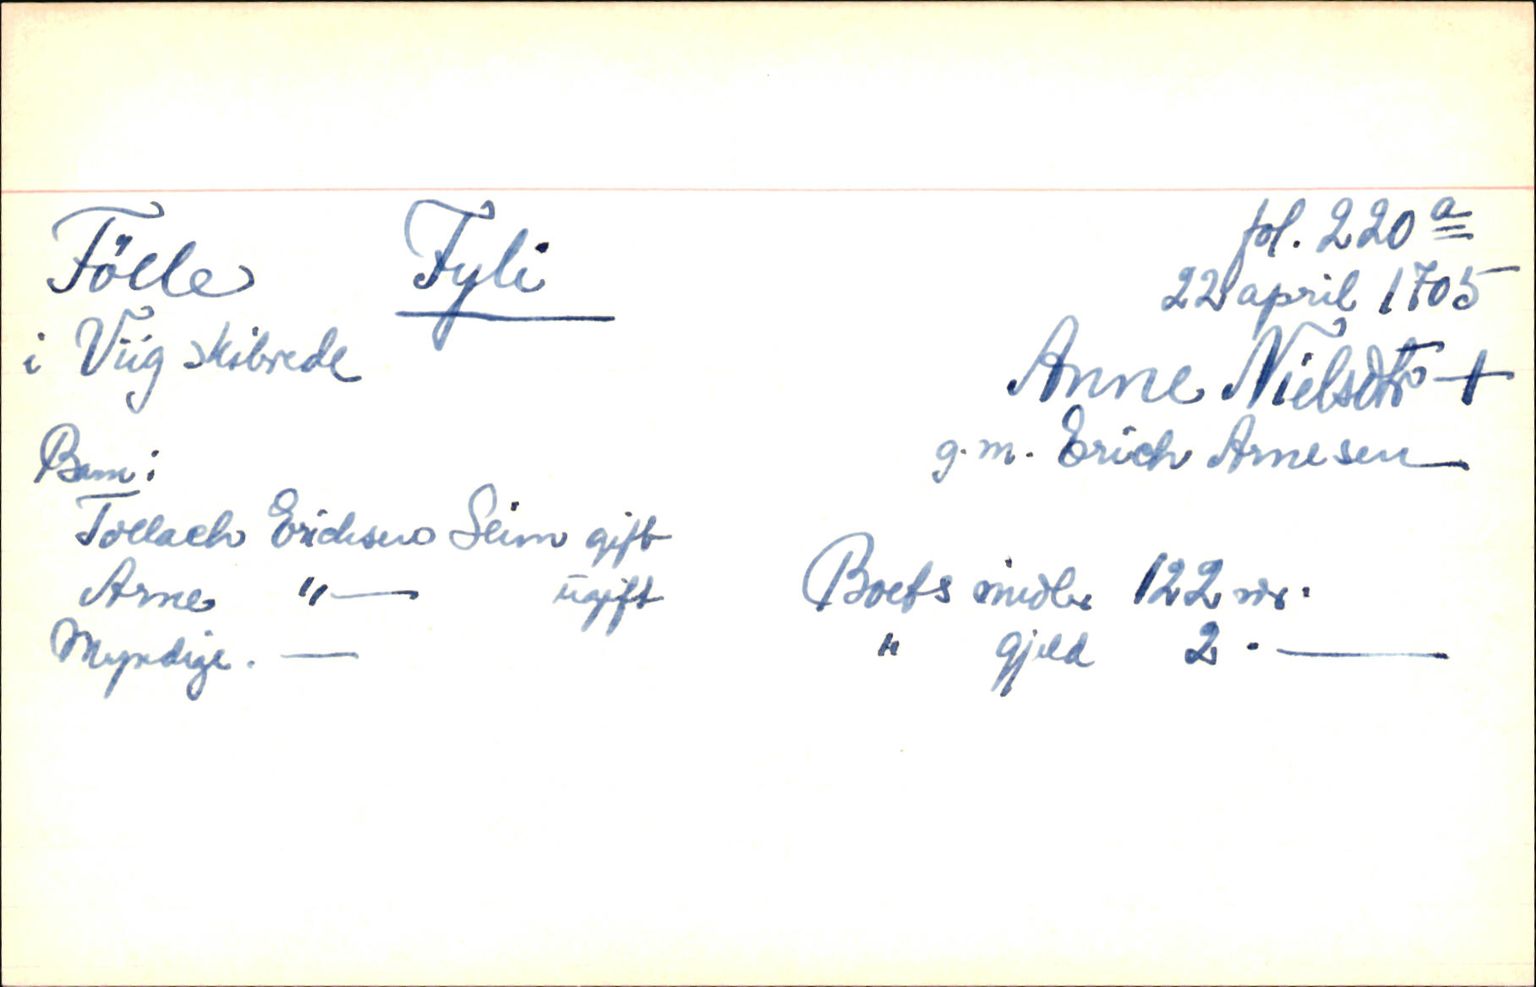 Fölle Fyli
i Viig skibrede
fol. 220 a
22 april 1705
Anne Nielsdtr +
g.m. Erich Arnesen
Barn:
Tollach Erichsen Seim gift
Arne "— ugift
Myndige. —
Boets midler 122 rdr.
" gjeld 2. —